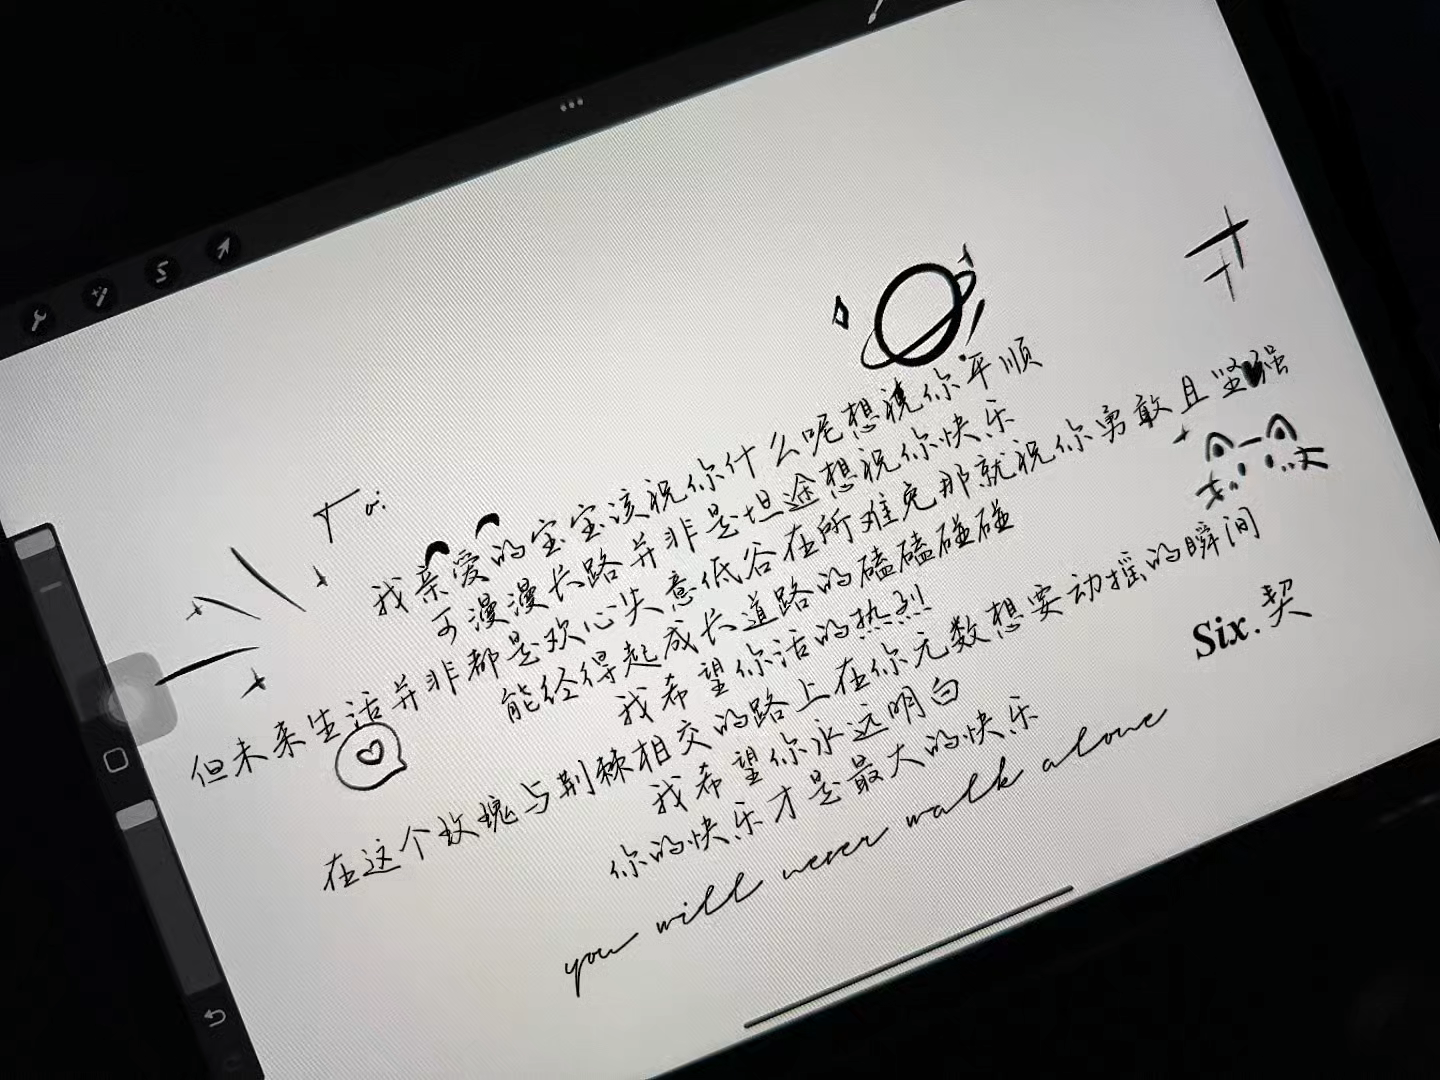 To:
我亲爱的宝宝该祝你什么呢想祝你平顺
可漫漫长路并非是坦途想祝你快乐
但未来生活并非都是欢心失意低谷在所难免那就祝你勇敢且坚强
能经得起成长道路的磕磕碰碰
我希望你活的热烈
在这个玫瑰与荆棘相交的路上在你无数想要动摇的瞬间
我希望你永远明白
你的快乐才是最大的快乐
you will never walk alone
Six.契